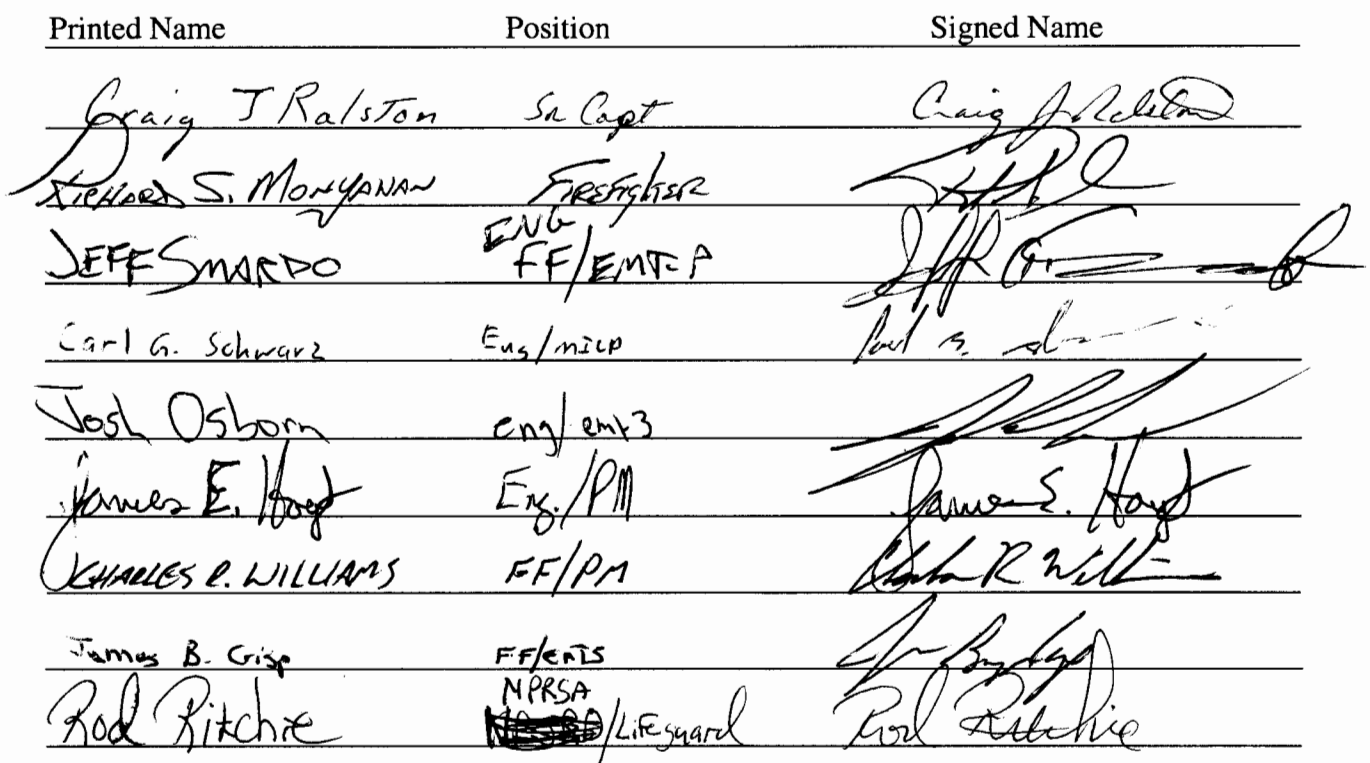 Printed Name Position Signed Name
Craig J Ralston Sr Capt Craig J Ralston
RICHARD S. MONYANAN FIREFIGHTER
ENG
JEFF SMARDO FF/EMT-P
Carl G. Schwarz Eng/MICP
Josh Osborn eng/emt3
James E. Hoyt Eng./PM James E. Hoyt
CHARLES R. WILLIAMS FF/PM Charles R Williams
James B. Crisp FF/EMT3
MPRSA
Rod Ritchie /Lifeguard Rod Ritchie